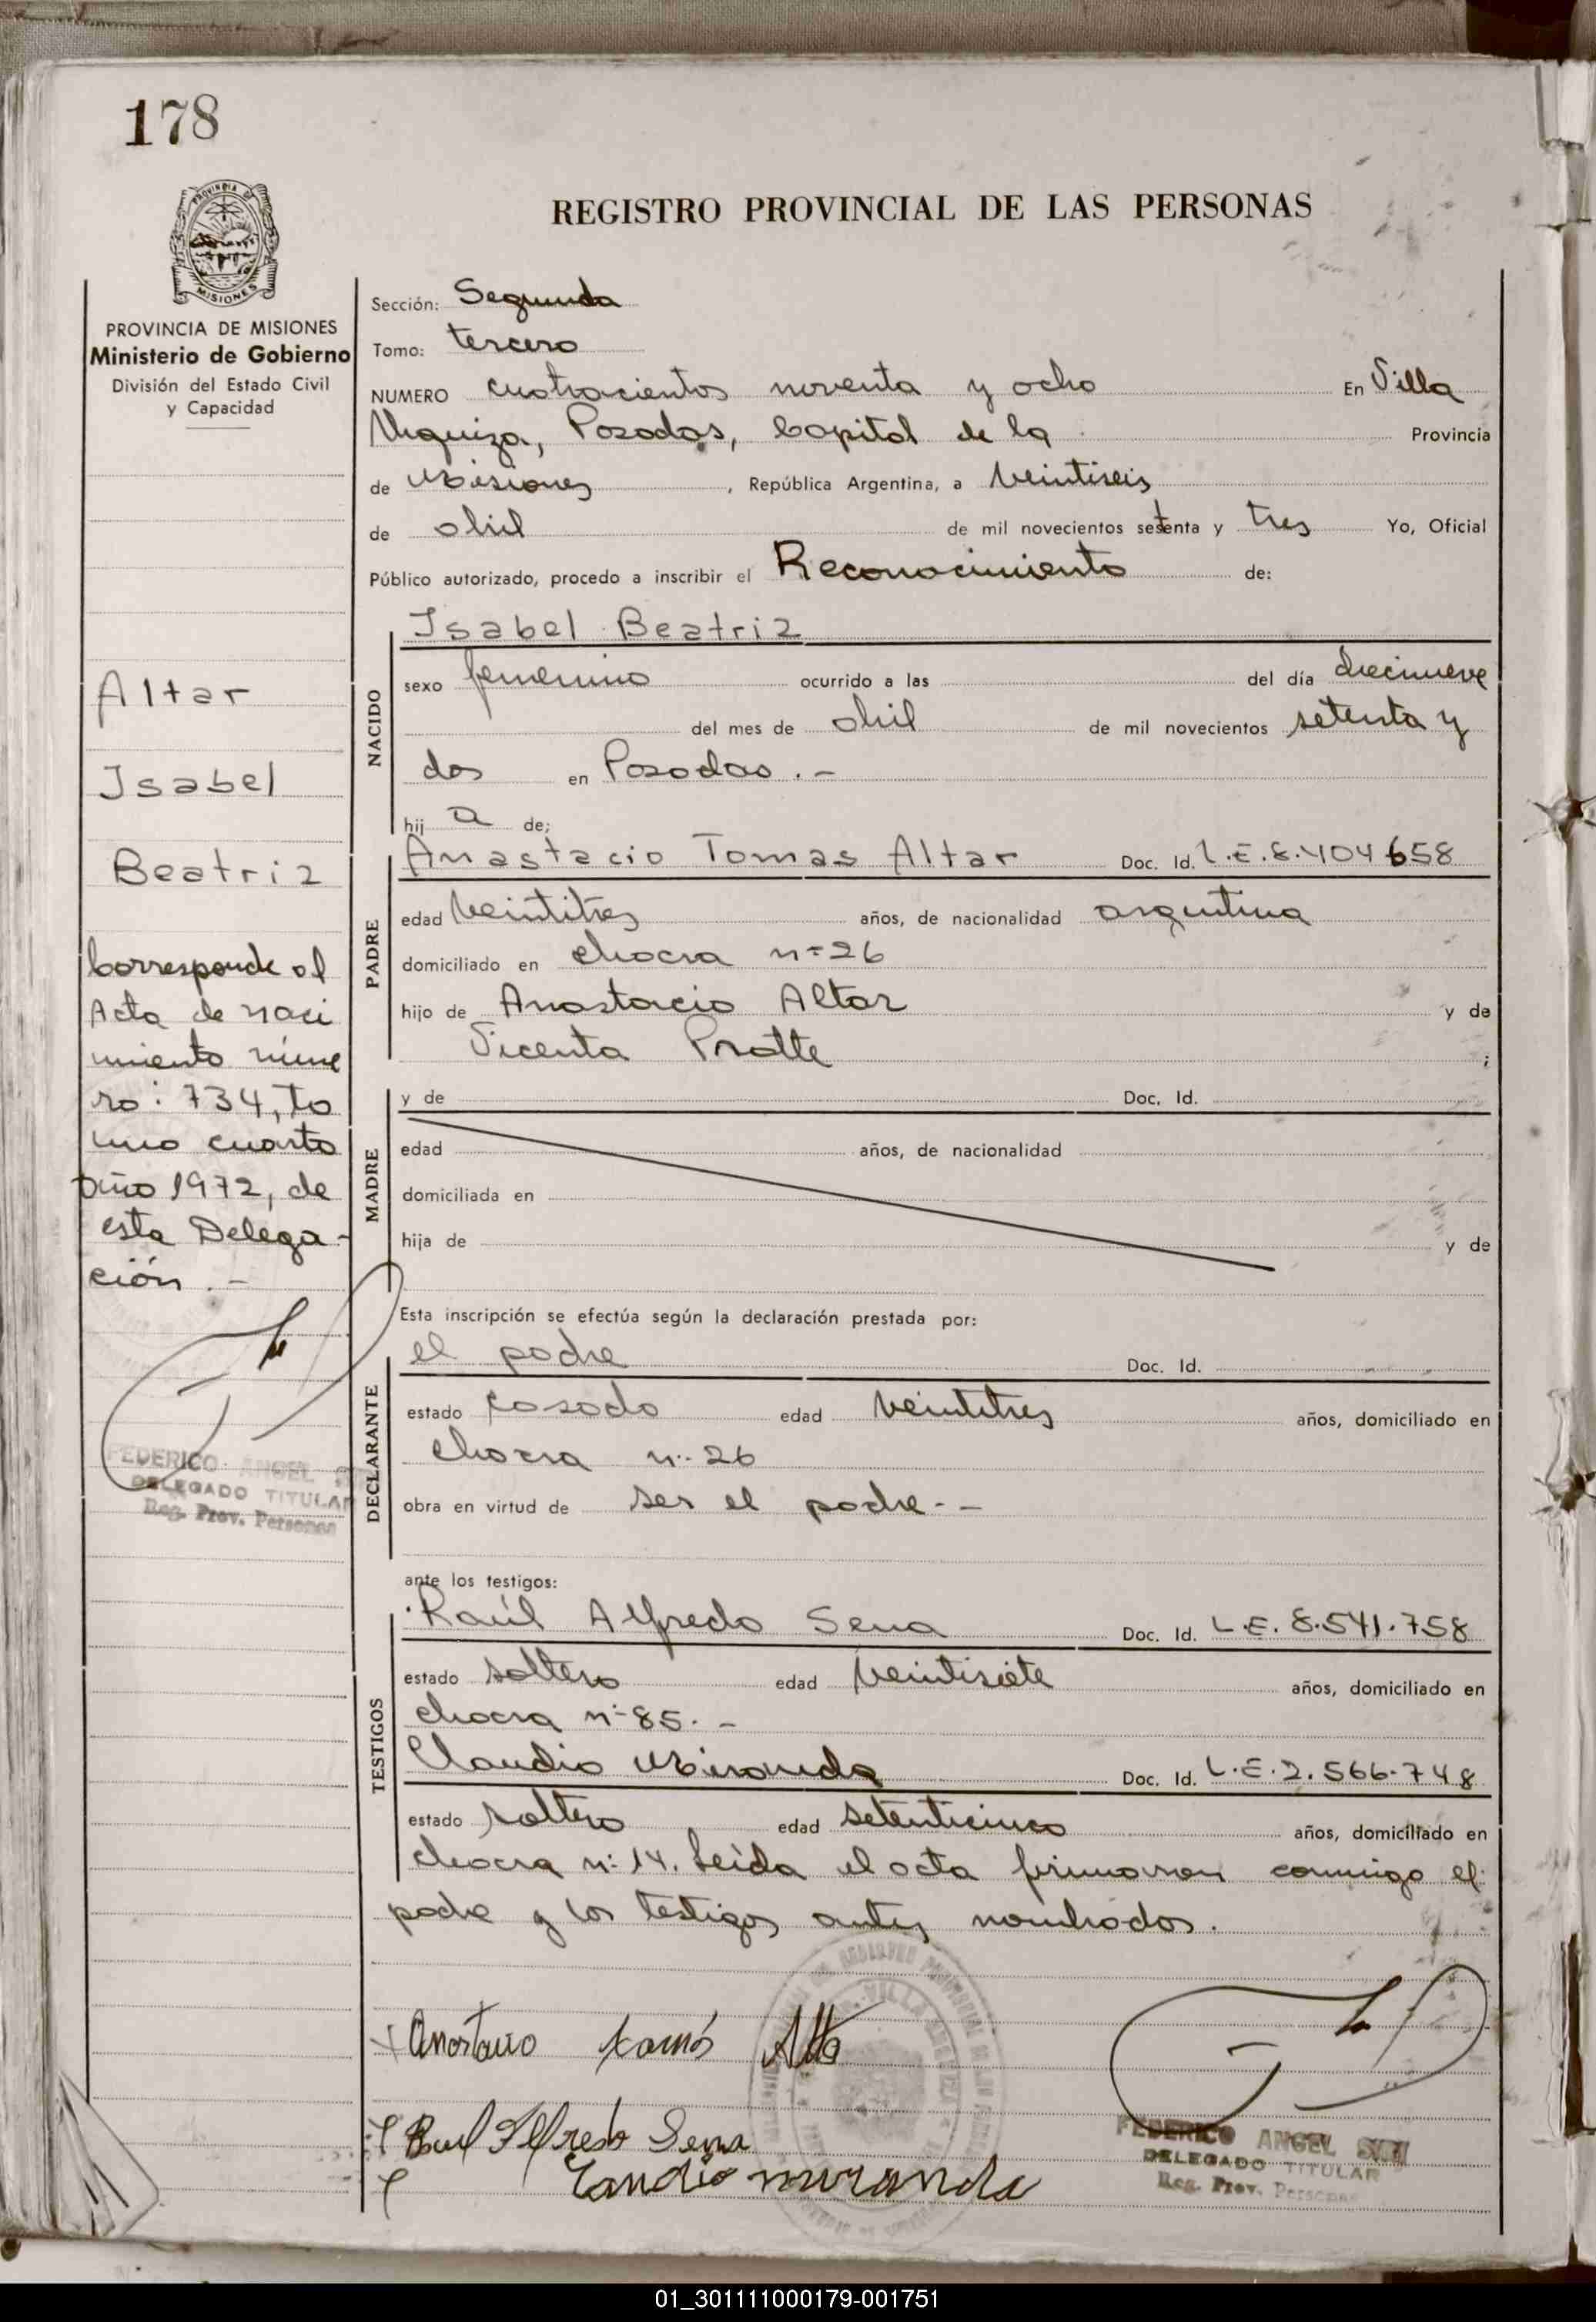 178
PROVINCIA DE
MISIONES
PROVINCIA DE MISIONES
Ministerio de Gobierno
División del Estado Civil
y Capacidad
Altar
Isabel
Beatriz
Corresponde al
Acta de naci
miento núme
ro: 734, to
mo cuarto
año 1972, de
esta Delega-
ción.-
FEDERICO ANGEL
DELEGADO TITULAR
Reg. Prov. Personas
REGISTRO PROVINCIAL DE LAS PERSONAS
Sección: Segunda
Tomo: tercero
NUMERO cuatrocientos noventa y ocho En Villa
Urquiza, Posadas, Capital de la Provincia
de Misiones, República Argentina, a veintiseis
de abril de mil novecientos setenta y tres Yo, Oficial
Público autorizado, procedo a inscribir el Reconocimiento de:
NACIDO
Isabel Beatriz
sexo femenino ocurrido a las del día diecinueve
del mes de abril de mil novecientos setenta y
dos en Posadas.-
hij a de:
PADRE
Anastacio Tomas Altar Doc. Id. L.E.8.404658
edad veintitres años, de nacionalidad argentina
domiciliado en chacra n=26
hijo de Anastacio Altar y de
Vicenta Pratte ;
MADRE
y de Doc. Id.
edad años, de nacionalidad
domiciliada en
hija de y de
Esta inscripción se efectúa según la declaración prestada por:
DECLARANTE
el padre Doc. Id.
estado casado edad veintitres años, domiciliado en
chacra n-26
obra en virtud de ser el padre.-
ante los testigos:
TESTIGOS
Raúl Alfredo Sena Doc. Id. L.E. 8.541.758
estado soltero edad veintisiete años, domiciliado en
chacra n-85.-
Claudio Miranda Doc. Id. L.E.2.566.748
estado soltero edad setenticinco años, domiciliado en
chacra n: 14. Leída el acta firmaron conmigo el
padre y los testigos antes nombrados.
Anastacio Tomás Alta
Raul Alfredo Sena
Claudio miranda
FEDERICO ANGEL
DELEGADO TITULAR
Reg. Prov. Personas
01_301111000179-001751